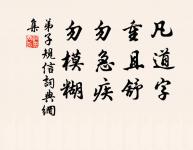 凡道字
重且舒
勿急疾
勿模糊
弟子規信詞典網
集